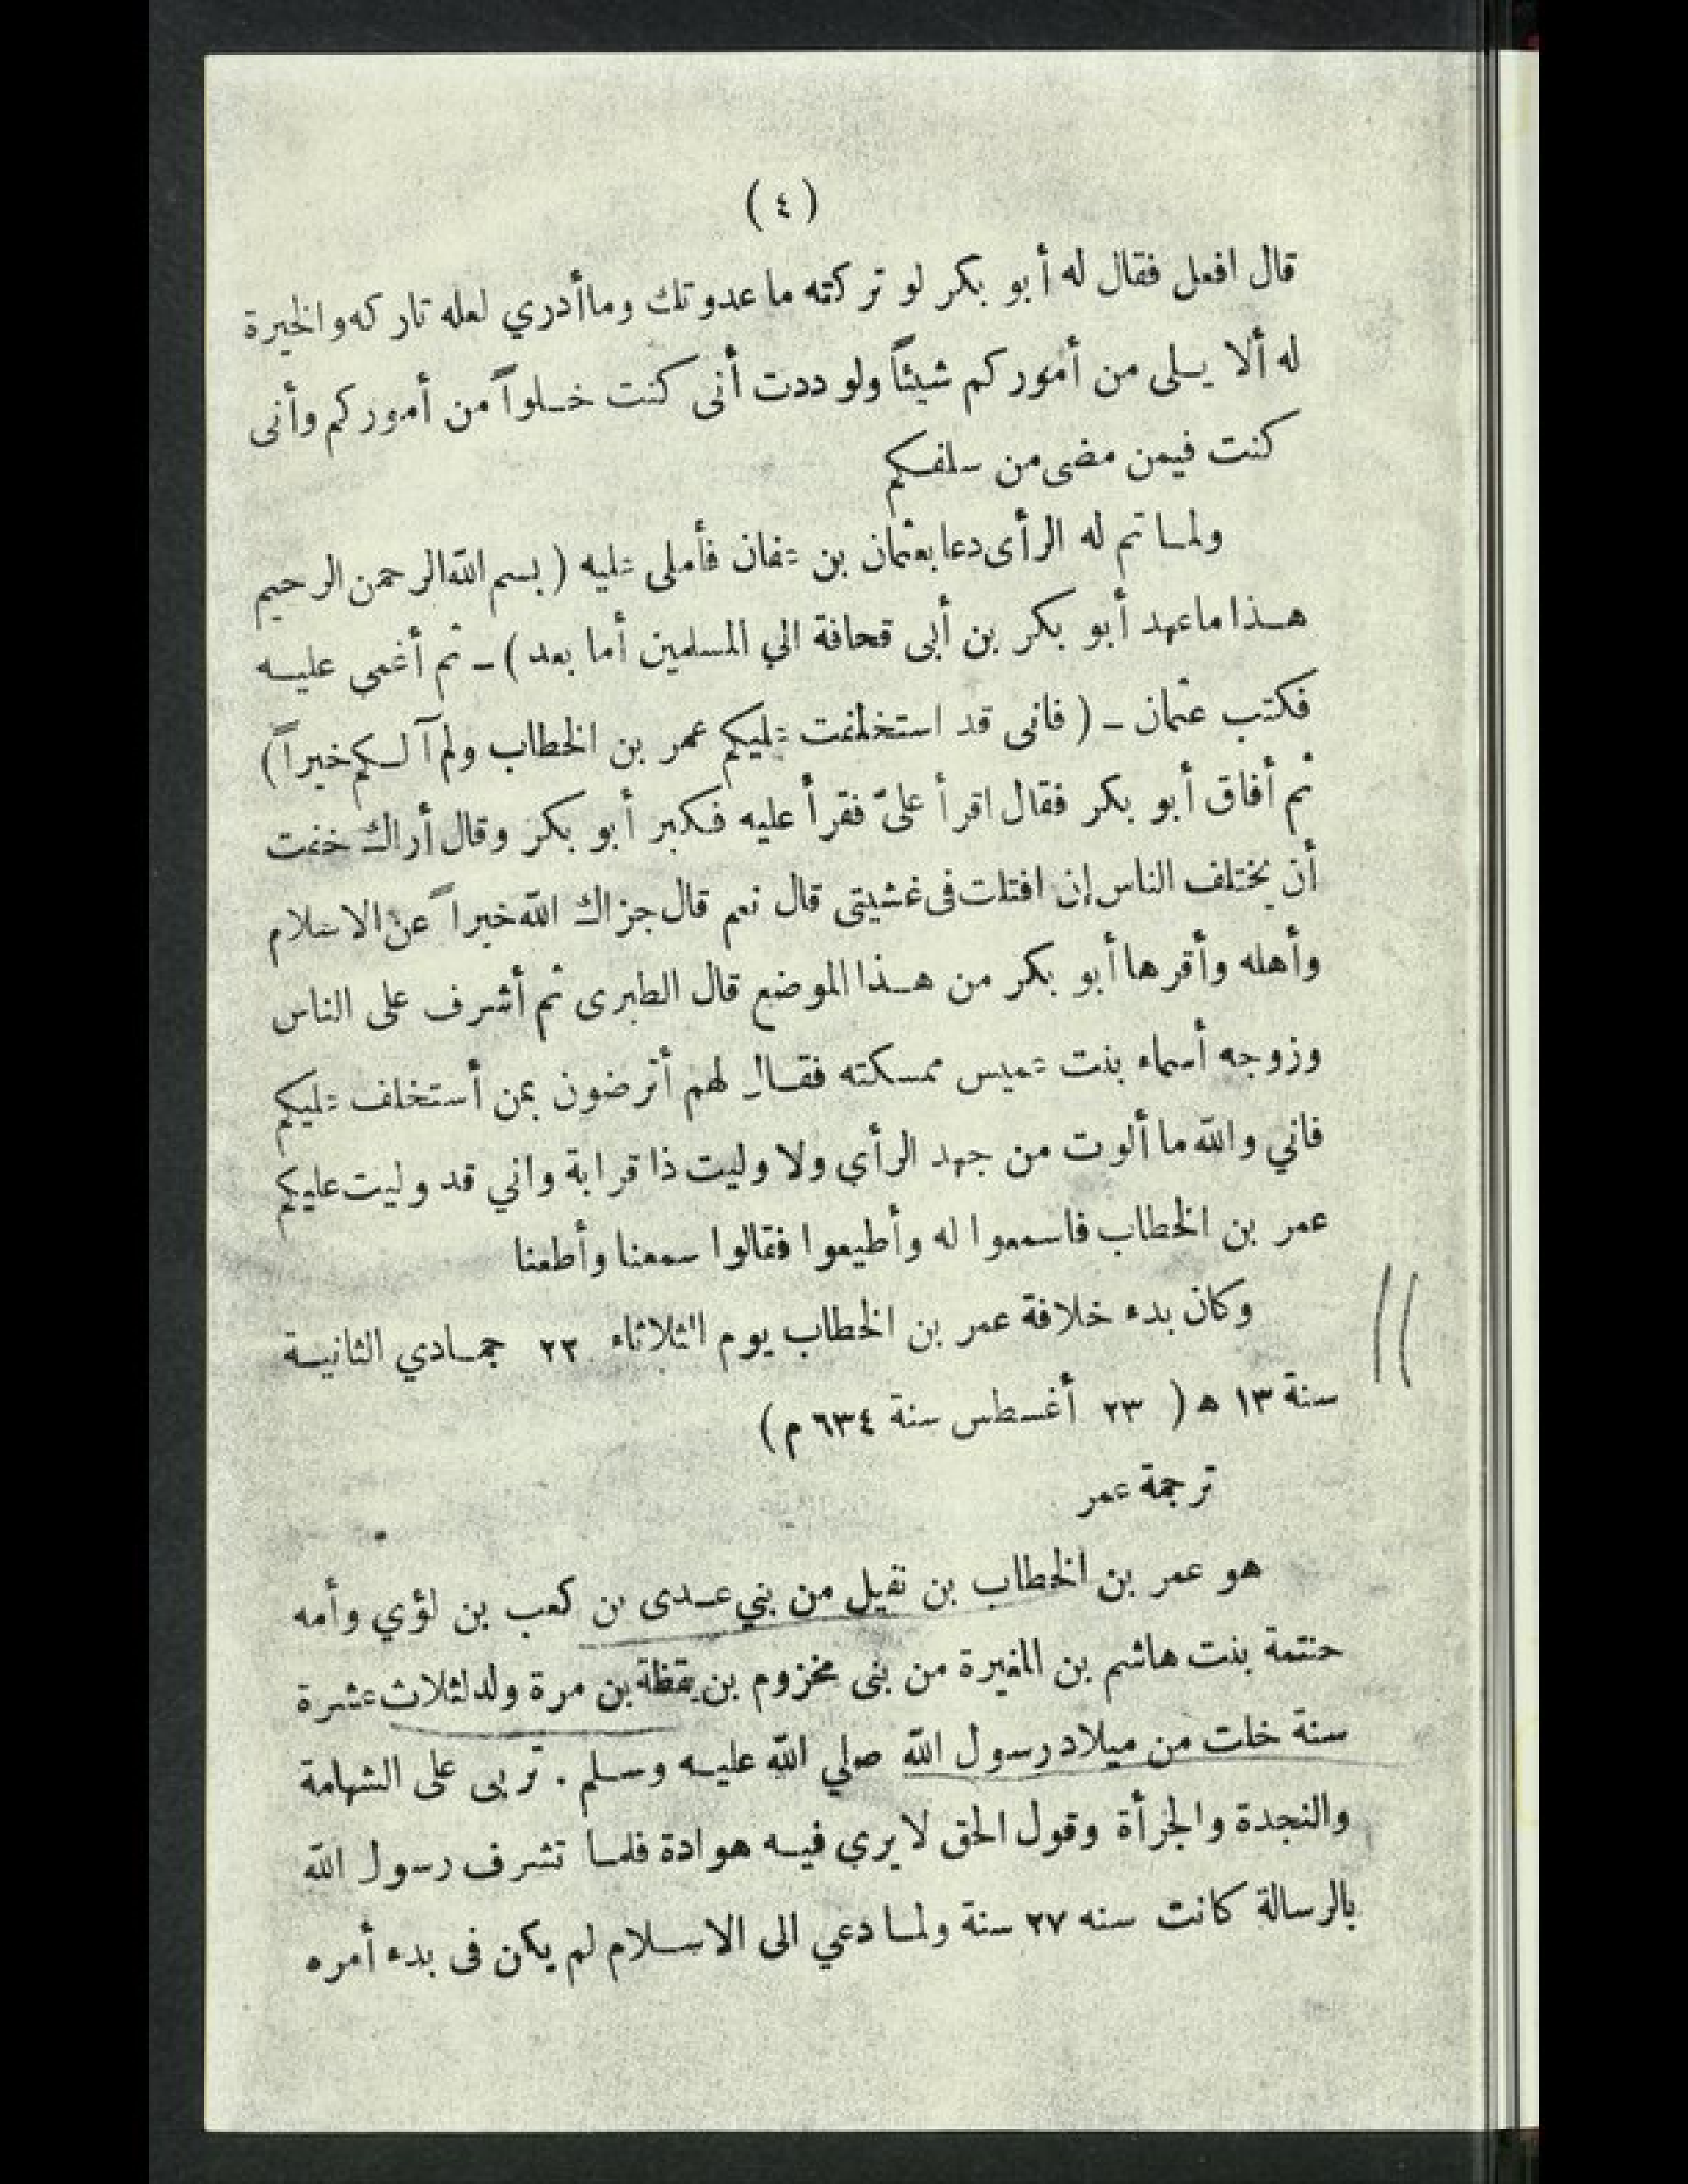 (٤)
قال افعل فقال له أبو بكر لو تركته ما عدوتك وما أدري لعله تاركه والخيرة
له ألا يلى من أموركم شيئاً ولوددت أنى كنت خلواً من أموركم وأنى
كنت فيمن مضى من سلفكم
ولما تم له الرأى دعا بعثمان بن عفان فأملى عليه (بسم الله الرحمن الرحيم
هذا ما عهد أبو بكر بن أبى قحافة الي المسلمين أما بعد) - ثم أغمى عليه
فكتب عثمان - (فانى قد استخلفت عليكم عمر بن الخطاب ولم آلكم خيراً)
ثم أفاق أبو بكر فقال اقرأ علىّ فقرأ عليه فكبر أبو بكر وقال أراك خفت
أن يختلف الناس إن افتلت فى غشيتى قال نعم قال جزاك الله خيراً عن الاسلام
وأهله وأقرها أبو بكر من هذا الموضع قال الطبرى ثم أشرف على الناس
وزوجه أسماء بنت عميس ممسكته فقال لهم أترضون بمن أستخلف عليكم
فاني والله ما ألوت من جهد الرأي ولا وليت ذا قرابة واني قد وليت عليكم
عمر بن الخطاب فاسمعوا له وأطيعوا فقالوا سمعنا وأطعنا
وكان بدء خلافة عمر بن الخطاب يوم الثلاثاء ٢٢ جمادي الثانية
سنة ١٣ ه (٢٣ أغسطس سنة ٦٣٤ م)
ترجمة عمر
هو عمر بن الخطاب بن نفيل من بني عدى بن كعب بن لؤي وأمه
حنتمة بنت هاشم بن المغيرة من بنى مخزوم بن يقظة بن مرة ولد لثلاث عشرة
سنة خلت من ميلاد رسول الله صلي الله عليه وسلم . تربى على الشهامة
والنجدة والجرأة وقول الحق لا يري فيه هوادة فلما تشرف رسول الله
بالرسالة كانت سنه ٢٧ سنة ولما دعي الى الاسلام لم يكن فى بدء أمره